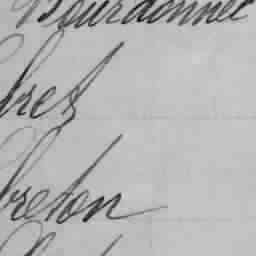 Bourdonnec
bret
breton